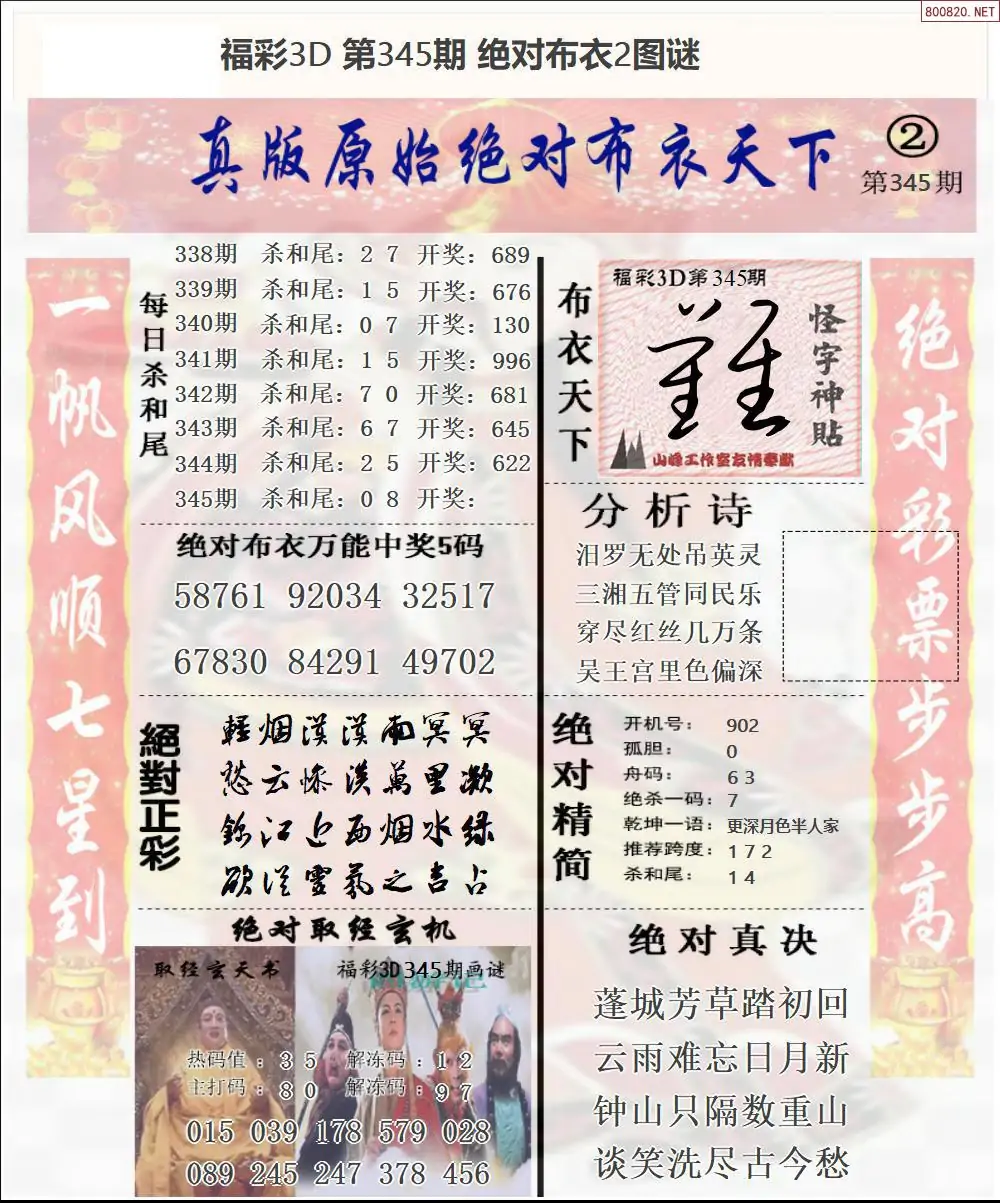 800820.NET
福彩3D 第345期 绝对布衣2图谜
真版原始绝对布衣天下
②
第345期
一帆风顺七星到
每日杀和尾
338期 杀和尾：2 7 开奖：689
339期 杀和尾：1 5 开奖：676
340期 杀和尾：0 7 开奖：130
341期 杀和尾：1 5 开奖：996
342期 杀和尾：7 0 开奖：681
343期 杀和尾：6 7 开奖：645
344期 杀和尾：2 5 开奖：622
345期 杀和尾：0 8 开奖：
绝对布衣万能中奖5码
58761 92034 32517
67830 84291 49702
絕對正彩
輕烟漠漠雨冥冥
愁云惨淡萬里凝
錦江近西烟水绿
欲從靈氛之吉占
绝对取经玄机
取经玄天书
福彩3D345期画谜
热码值：3 5 解冻码：1 2
主打码：8 0 解冻码：9 7
015 039 178 579 028
089 245 247 378 456
布衣天下
福彩3D第345期
怪字神貼
山峰工作室友情奉献
分析诗
汨罗无处吊英灵
三湘五管同民乐
穿尽红丝几万条
吴王宫里色偏深
绝对精简
开机号： 902
孤胆： 0
舟码： 6 3
绝杀一码：7
乾坤一语：更深月色半人家
推荐跨度：1 7 2
杀和尾： 1 4
绝对真决
蓬城芳草踏初回
云雨难忘日月新
钟山只隔数重山
谈笑洗尽古今愁
绝对彩票步步高